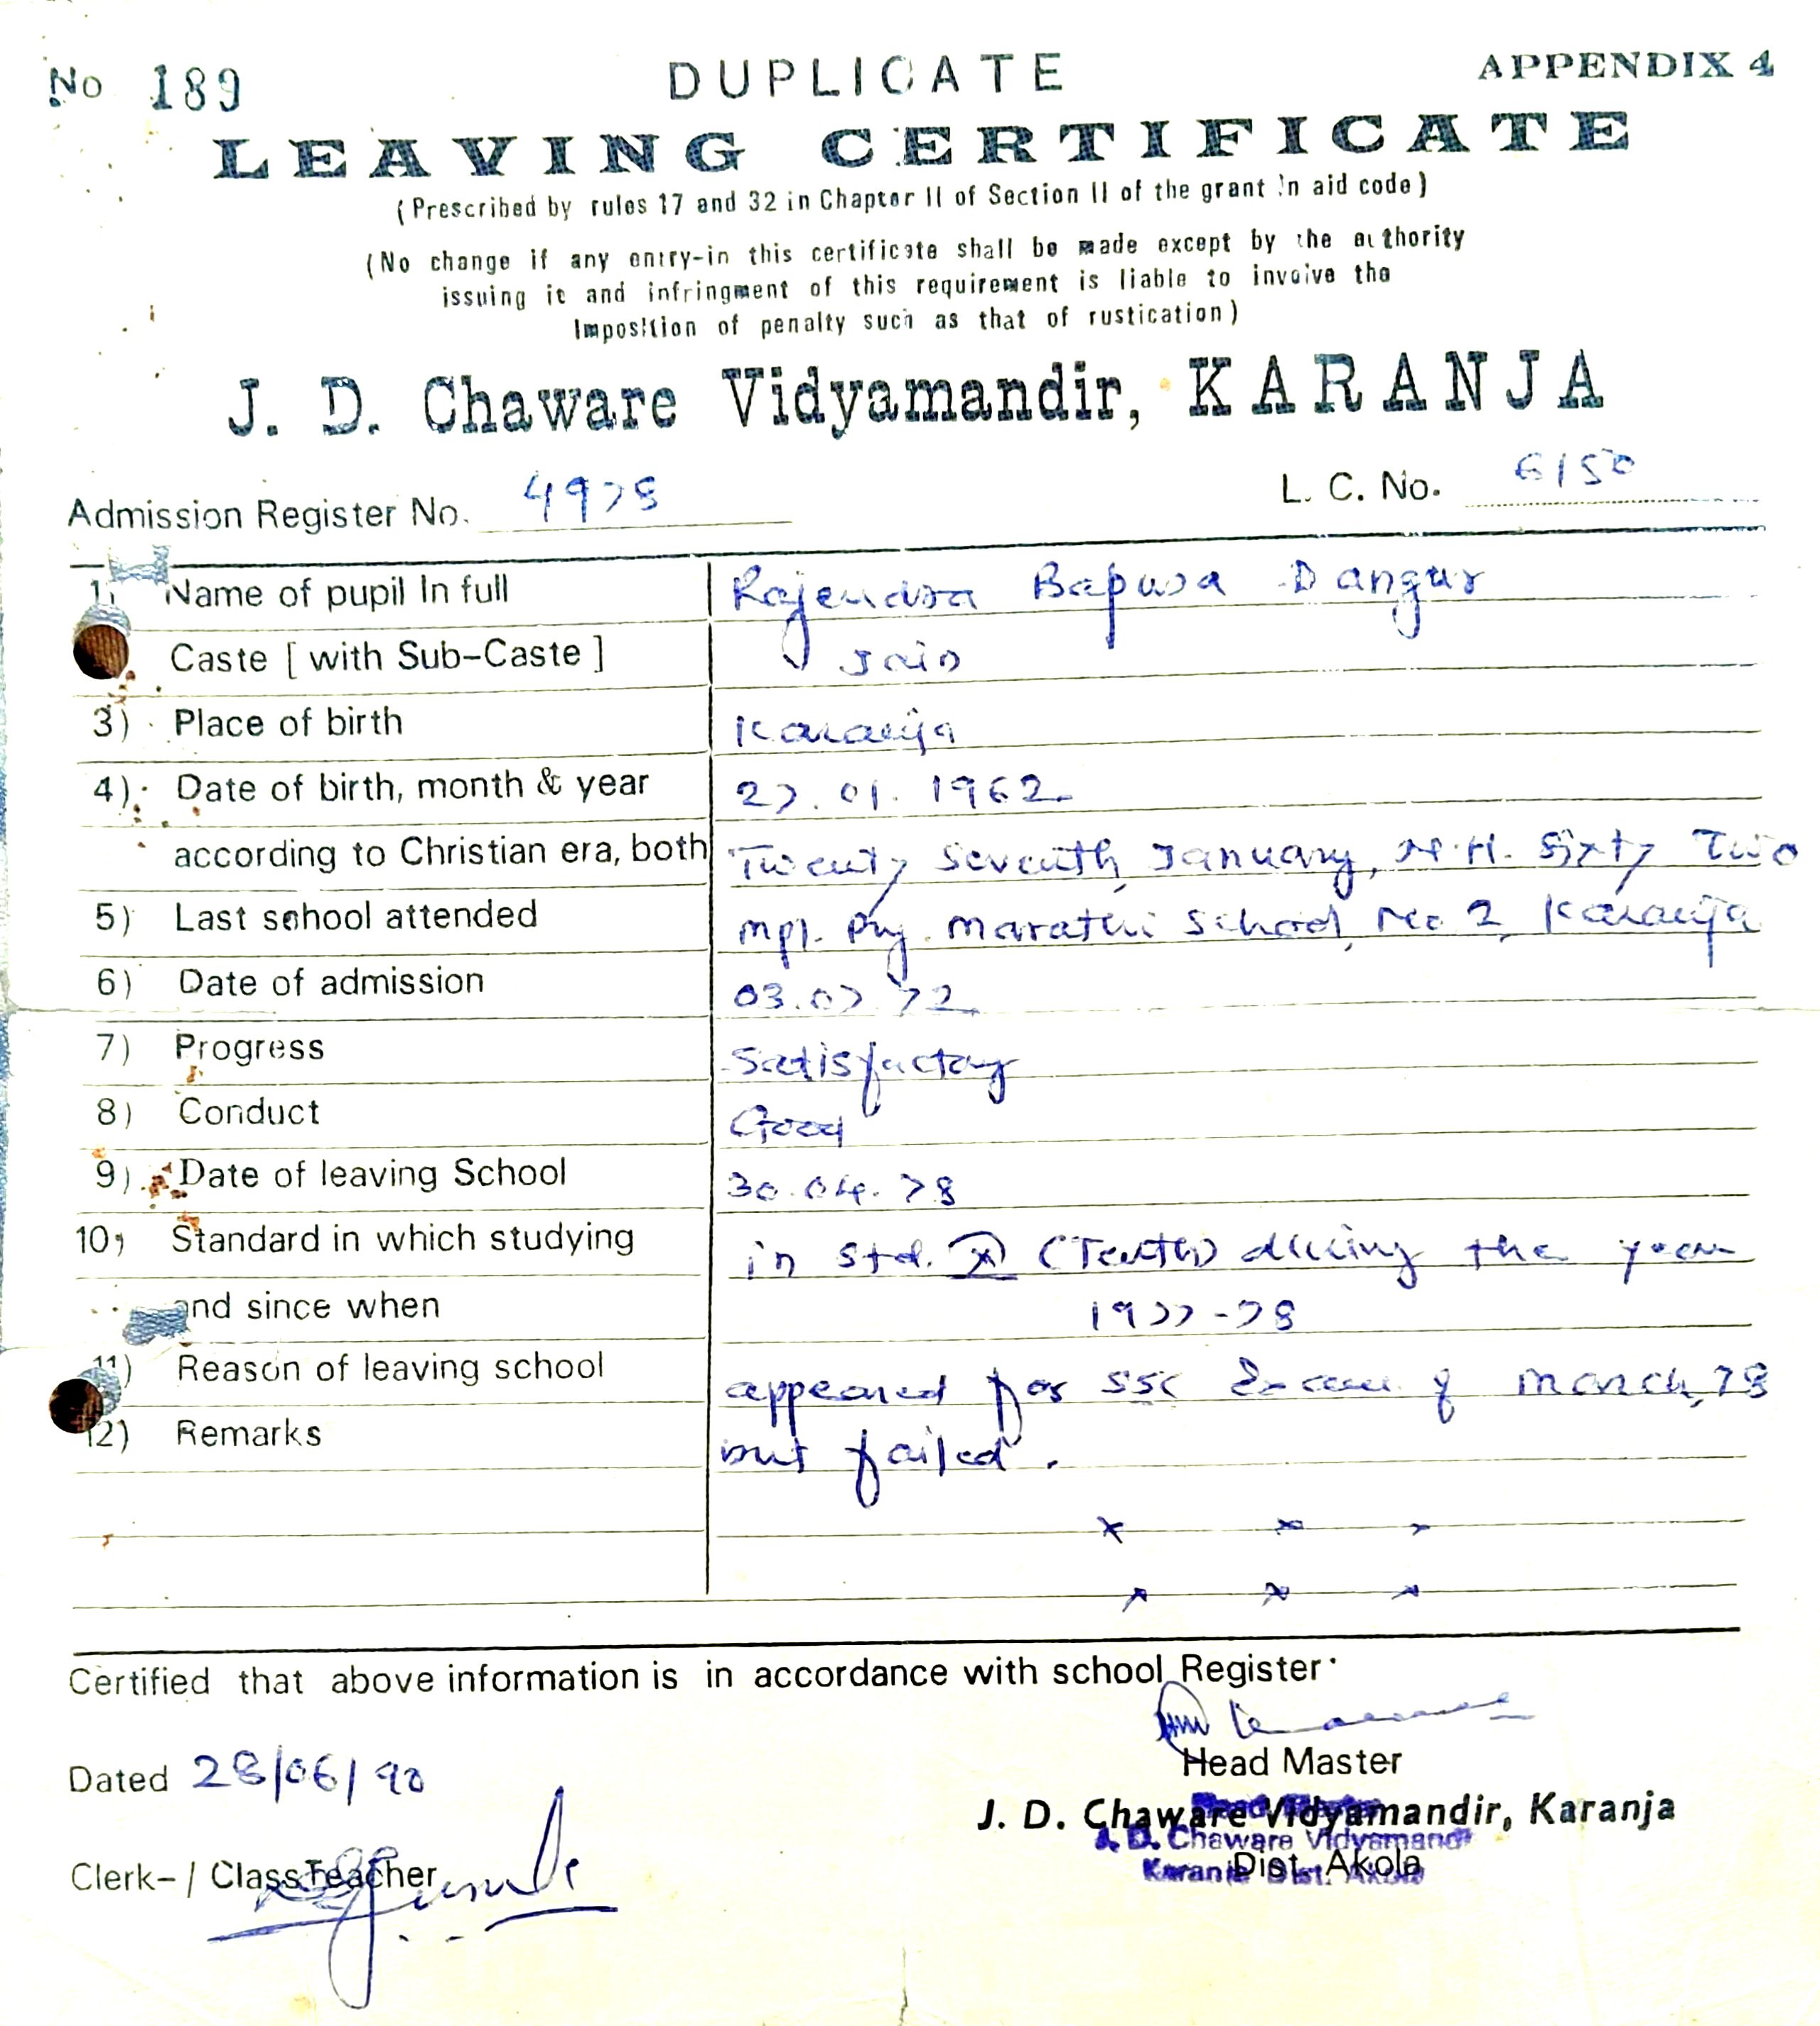 No 189
DUPLICATE
APPENDIX 4
LEAVING CERTIFICATE
( Prescribed by rules 17 and 32 in Chapter II of Section II of the grant in aid code )
(No change if any entry-in this certificate shall be made except by the authority
issuing it and infringment of this requirement is liable to involve the
Imposition of penalty such as that of rustication)
J. D. Chaware Vidyamandir, KARANJA
Admission Register No. 4978
L. C. No. 6150
1) Name of pupil In full Rajendra Bapusa Dangur
Caste [ with Sub-Caste ] Jain
3) Place of birth Karanja
4) Date of birth, month & year 27.01.1962
according to Christian era, both Twenty Seventh, January, N.H. Sixty Two
5) Last school attended Mpl. Pry. Marathi School, No. 2, Karanja
6) Date of admission 03.07.72
7) Progress Satisfactory
8) Conduct Good
9) Date of leaving School 30.04.78
10) Standard in which studying in Std. X (Tenth) during the year
and since when 1977-78
11) Reason of leaving school appeared for SSC Exam of March, 78
12) Remarks but failed.
Certified that above information is in accordance with school Register
Head Master
Dated 28/06/90
J. D. Chaware Vidyamandir, Karanja
J. D. Chaware Vidyamandir
Clerk- / Class Teacher
Dist. Akola
Karanja Dist. Akola